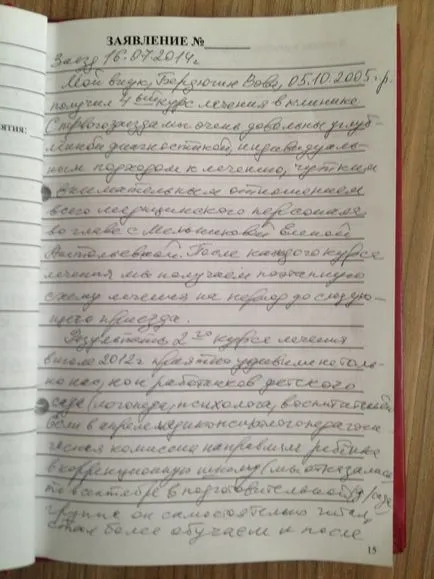 ЗАЯВЛЕНИЕ №
Заезд 16.07.2014г.
Мой внук, Бердюгин Вова, 05.10.2005г.р.
получил 4 ый курс лечения в клинике
С первого заезда мы очень довольны углуб-
лённой диагностикой, индивидуаль-
ным подходом к лечению, чутким
внимательным отношением
всего медицинского персонала
во главе с Мельниковой Еленой
Анатольевной. После каждого курса
лечения мы получаем поэтапную
схему лечения на период до следую-
щего приезда.
Результаты 2 го курса лечения
в июле 2012г приятно удивили не толь-
ко нас, но и работников детского
сада (логопеда, психолога, воспитателей)
если в апреле медикопсихологопедагоги
ческая комиссия направила ребёнка
в коррекционную школу (мы отказались
то в сентябре в подготовительной д/сада
группе он самостоятельно читал,
стал более обучаем и после
15
ЯТИЯ: